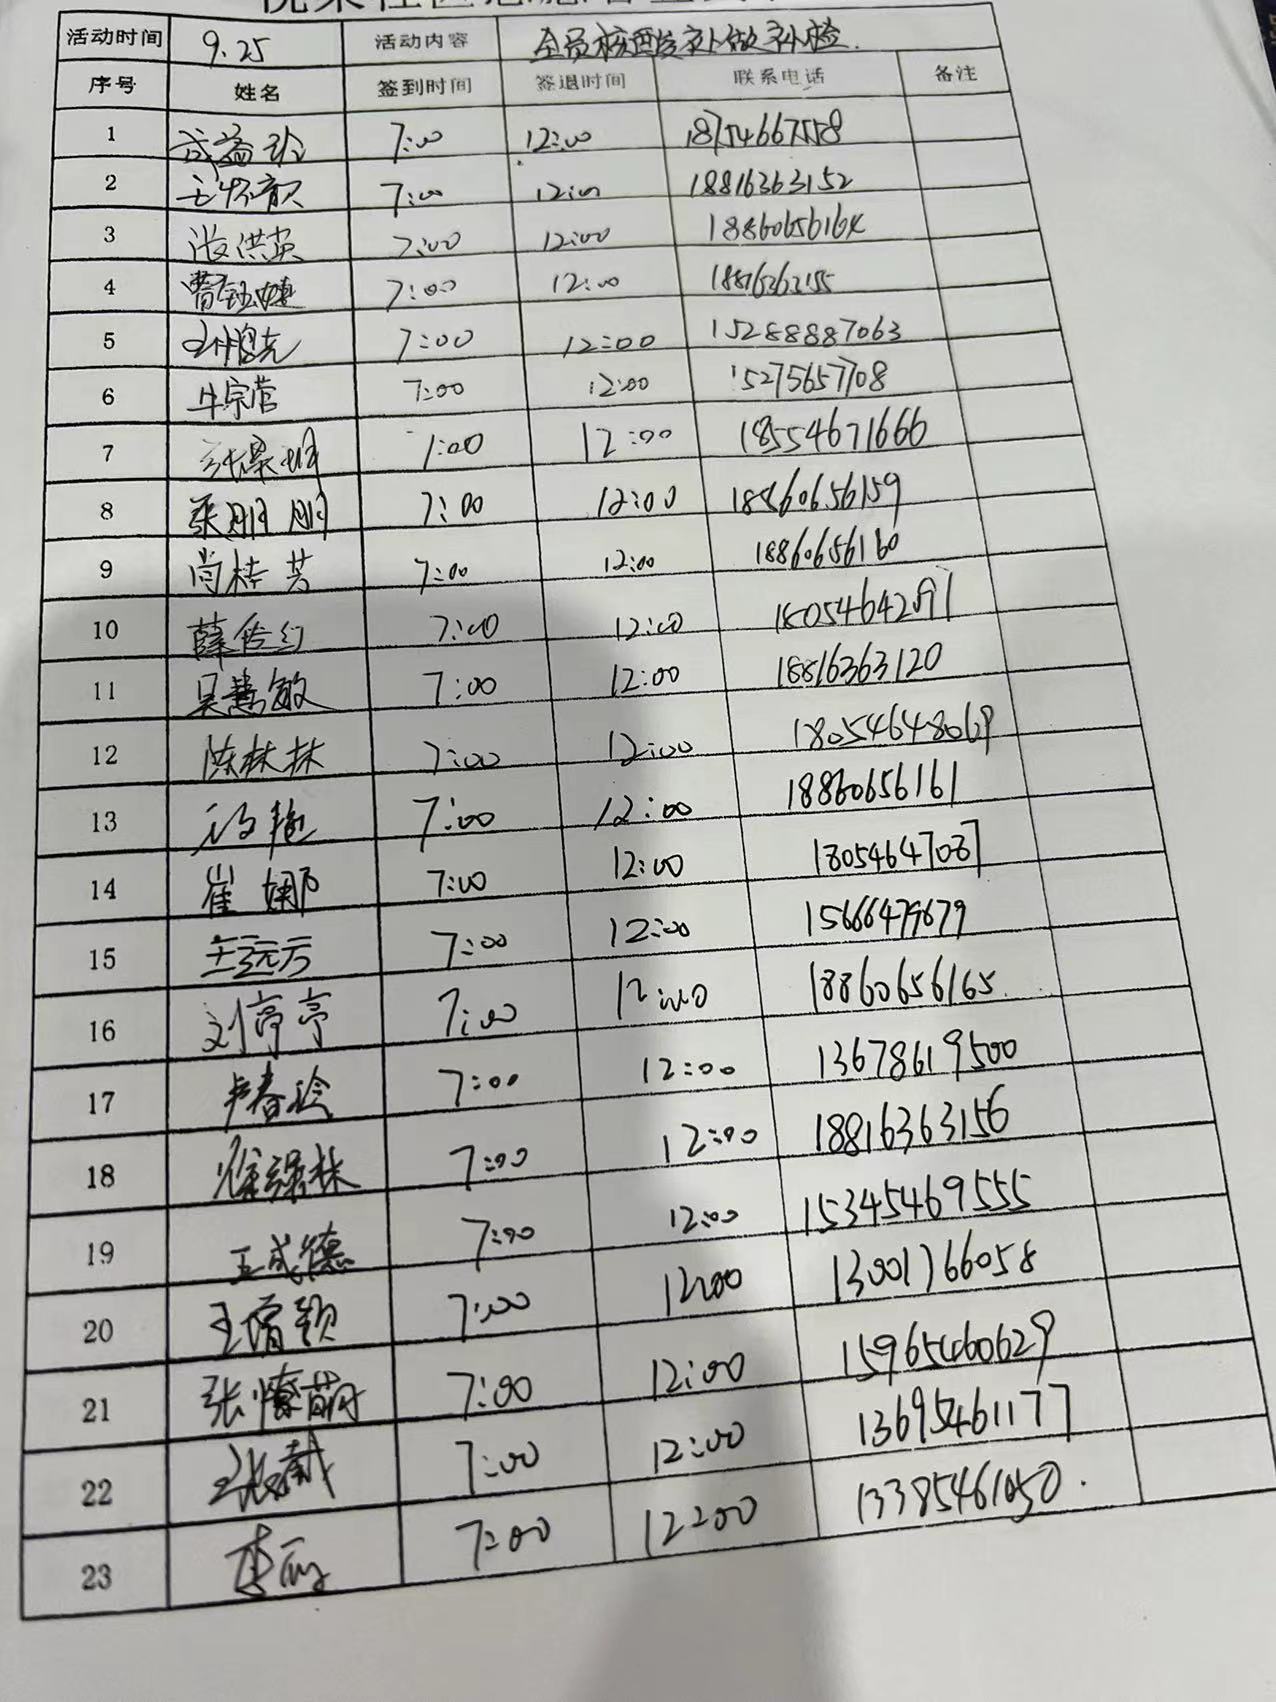 活动时间 9.25 活动内容 全员核酸补做补检.
序号 姓名 签到时间 签退时间 联系电话 备注
1 成益玲 7:00 12:00 18754667558
2 王怀育 7:00 12:00 18816363152
3 张洪英 7:00 12:00 18860656164
4 曹钰婕 7:00 12:00 18816363155
5 7:00 12:00 15288887063
6 牛宗营 7:00 12:00 15275657708
7 张梁娟 7:00 12:00 18554671666
8 张明明 7:00 12:00 18860656159
9 尚桂芳 7:00 12:00 18860656160
10 薛传红 7:00 12:00
11 吴慧敏 7:00 12:00 18816363120
12 陈林林 7:00 12:00 18054648069
13 7:00 12:00 18860656161
14 崔娜 7:00 12:00 18054647087
15 王远方 7:00 12:00 15666479679
16 刘亭亭 7:00 12:00 18860656165
17 卢春玲 7:00 12:00 13678619500
18 徐绿林 7:00 12:00 18816363156
19 王成德 7:00 12:00 15345469555
20 王倩颖 7:00 12:00 13001766058
21 张萌 7:00 12:00 15965460629
22 张戴 7:00 12:00 13695461177
23 李丽 7:00 12:00 13385461050.